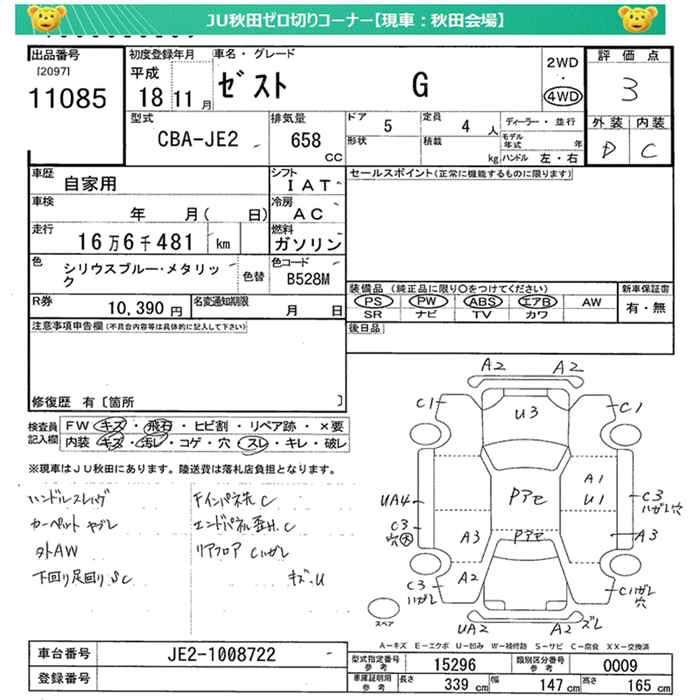 JU秋田ゼロ切りコーナー【現車：秋田会場】
出品番号
[2097]
11085
初度登録年月
平成
18 11 月
車名・グレード
ゼスト G
2WD
・
4WD
評価点
3
型式
CBA-JE2
排気量
658
CC
ドア 5
定員 4 人
形状
積載 kg
ディーラー・並行
モデル年式 年
ハンドル 左・右
外装 内装
D C
車歴 自家用
シフト IAT
車検 年 月( 日)
冷房 AC
走行 16万6千481 km
燃料 ガソリン
色 シリウスブルー・メタリック
色替
色コード B528M
R券 10,390 円
名変通知期限 月 日
セールスポイント(正常に機能するものに限ります)
装備品 (純正品に限り○をつけてください)
新車保証書
PS PW ABS エアB AW
SR ナビ TV カワ
有・無
後日品
注意事項申告欄(不具合内容等は具体的に記入して下さい)
修復歴 有〔箇所 〕
検査員記入欄
FW キズ・飛石・ヒビ割・リペア跡・×要
内装 キズ・汚レ・コゲ・穴・スレ・キレ・破レ
※現車はJU秋田にあります。陸送費は落札店負担となります。
ハンドルスレ
カーペット ヤブレ
タトAW
下回り足回りSC
Fインパネ先 C
エンドパネル歪み.C
リアフロア Cハガレ
キズ.U
A2 A2
C1 C1
U3
UA4
Pアセ
A1
U1
C3
ハガレ穴
C3
穴大
A3
Pアセ
A3
C3
ハガレ
A2
Cハガレ
穴
UA2 A2 ズレ
スペア
A－キズ E－エクボ U－凹み W－補修跡 S－サビ C－腐食 XX－交換済
車台番号 JE2-1008722
登録番号
型式指定番号 参考 15296
類別区分番号 参考 0009
車庫証明用 参考 長さ 339 cm 幅 147 cm 高さ 165 cm